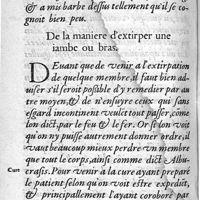 & a mis barbe dessus tellement qu'il se co
gnoit bien peu.
De la maniere d'extirper une
iambe ou bras.
DEuant que de venir a l'extirpation
de quelque membre, il faut bien ad-
uiser s'il seroit possible d'y remedier par au
tre moyen, & de n'ensuyre ceux qui sans
esgard incontinent veulct tout passer, cõme
lon dict, par le feu & le fer. Or si lon voit
qu'on n'y puisse autrement donner ordre, il
vaut beaucoup mieux perdre un membre
que tout le corps, ainsi comme dict Albu-
crasis. Pour venir a la cure ayant preparé
le patient selon qu'on voit estre expedit,
& principallement l'ayant coroboré par
Cure